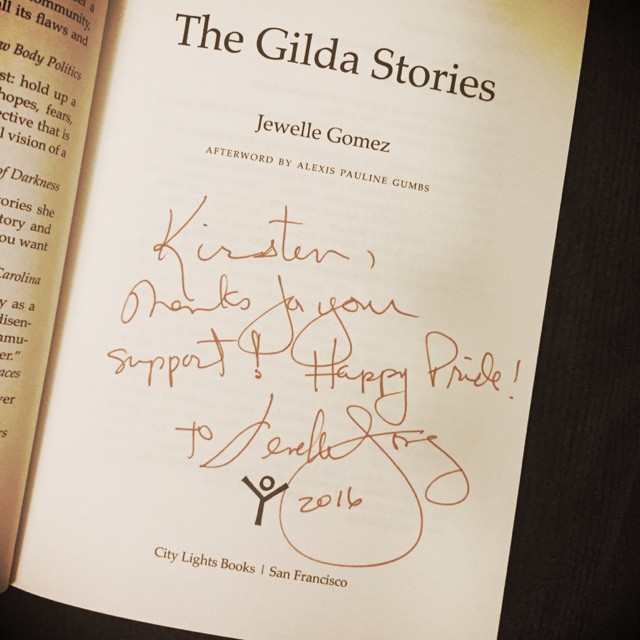 community,
all its flaws and
w Body Politics
st: hold up a
hopes, fears,
ective that is
l vision of a
of Darkness
ories she
tory and
ou want
Carolina
y as a
disen-
mmu-
er."
aces
ver
rs
The Gilda Stories
Jewelle Gomez
AFTERWORD BY ALEXIS PAULINE GUMBS
Kirsten,
Thanks for your
support! Happy Pride!
Jewelle Gomez
2016
City Lights Books | San Francisco